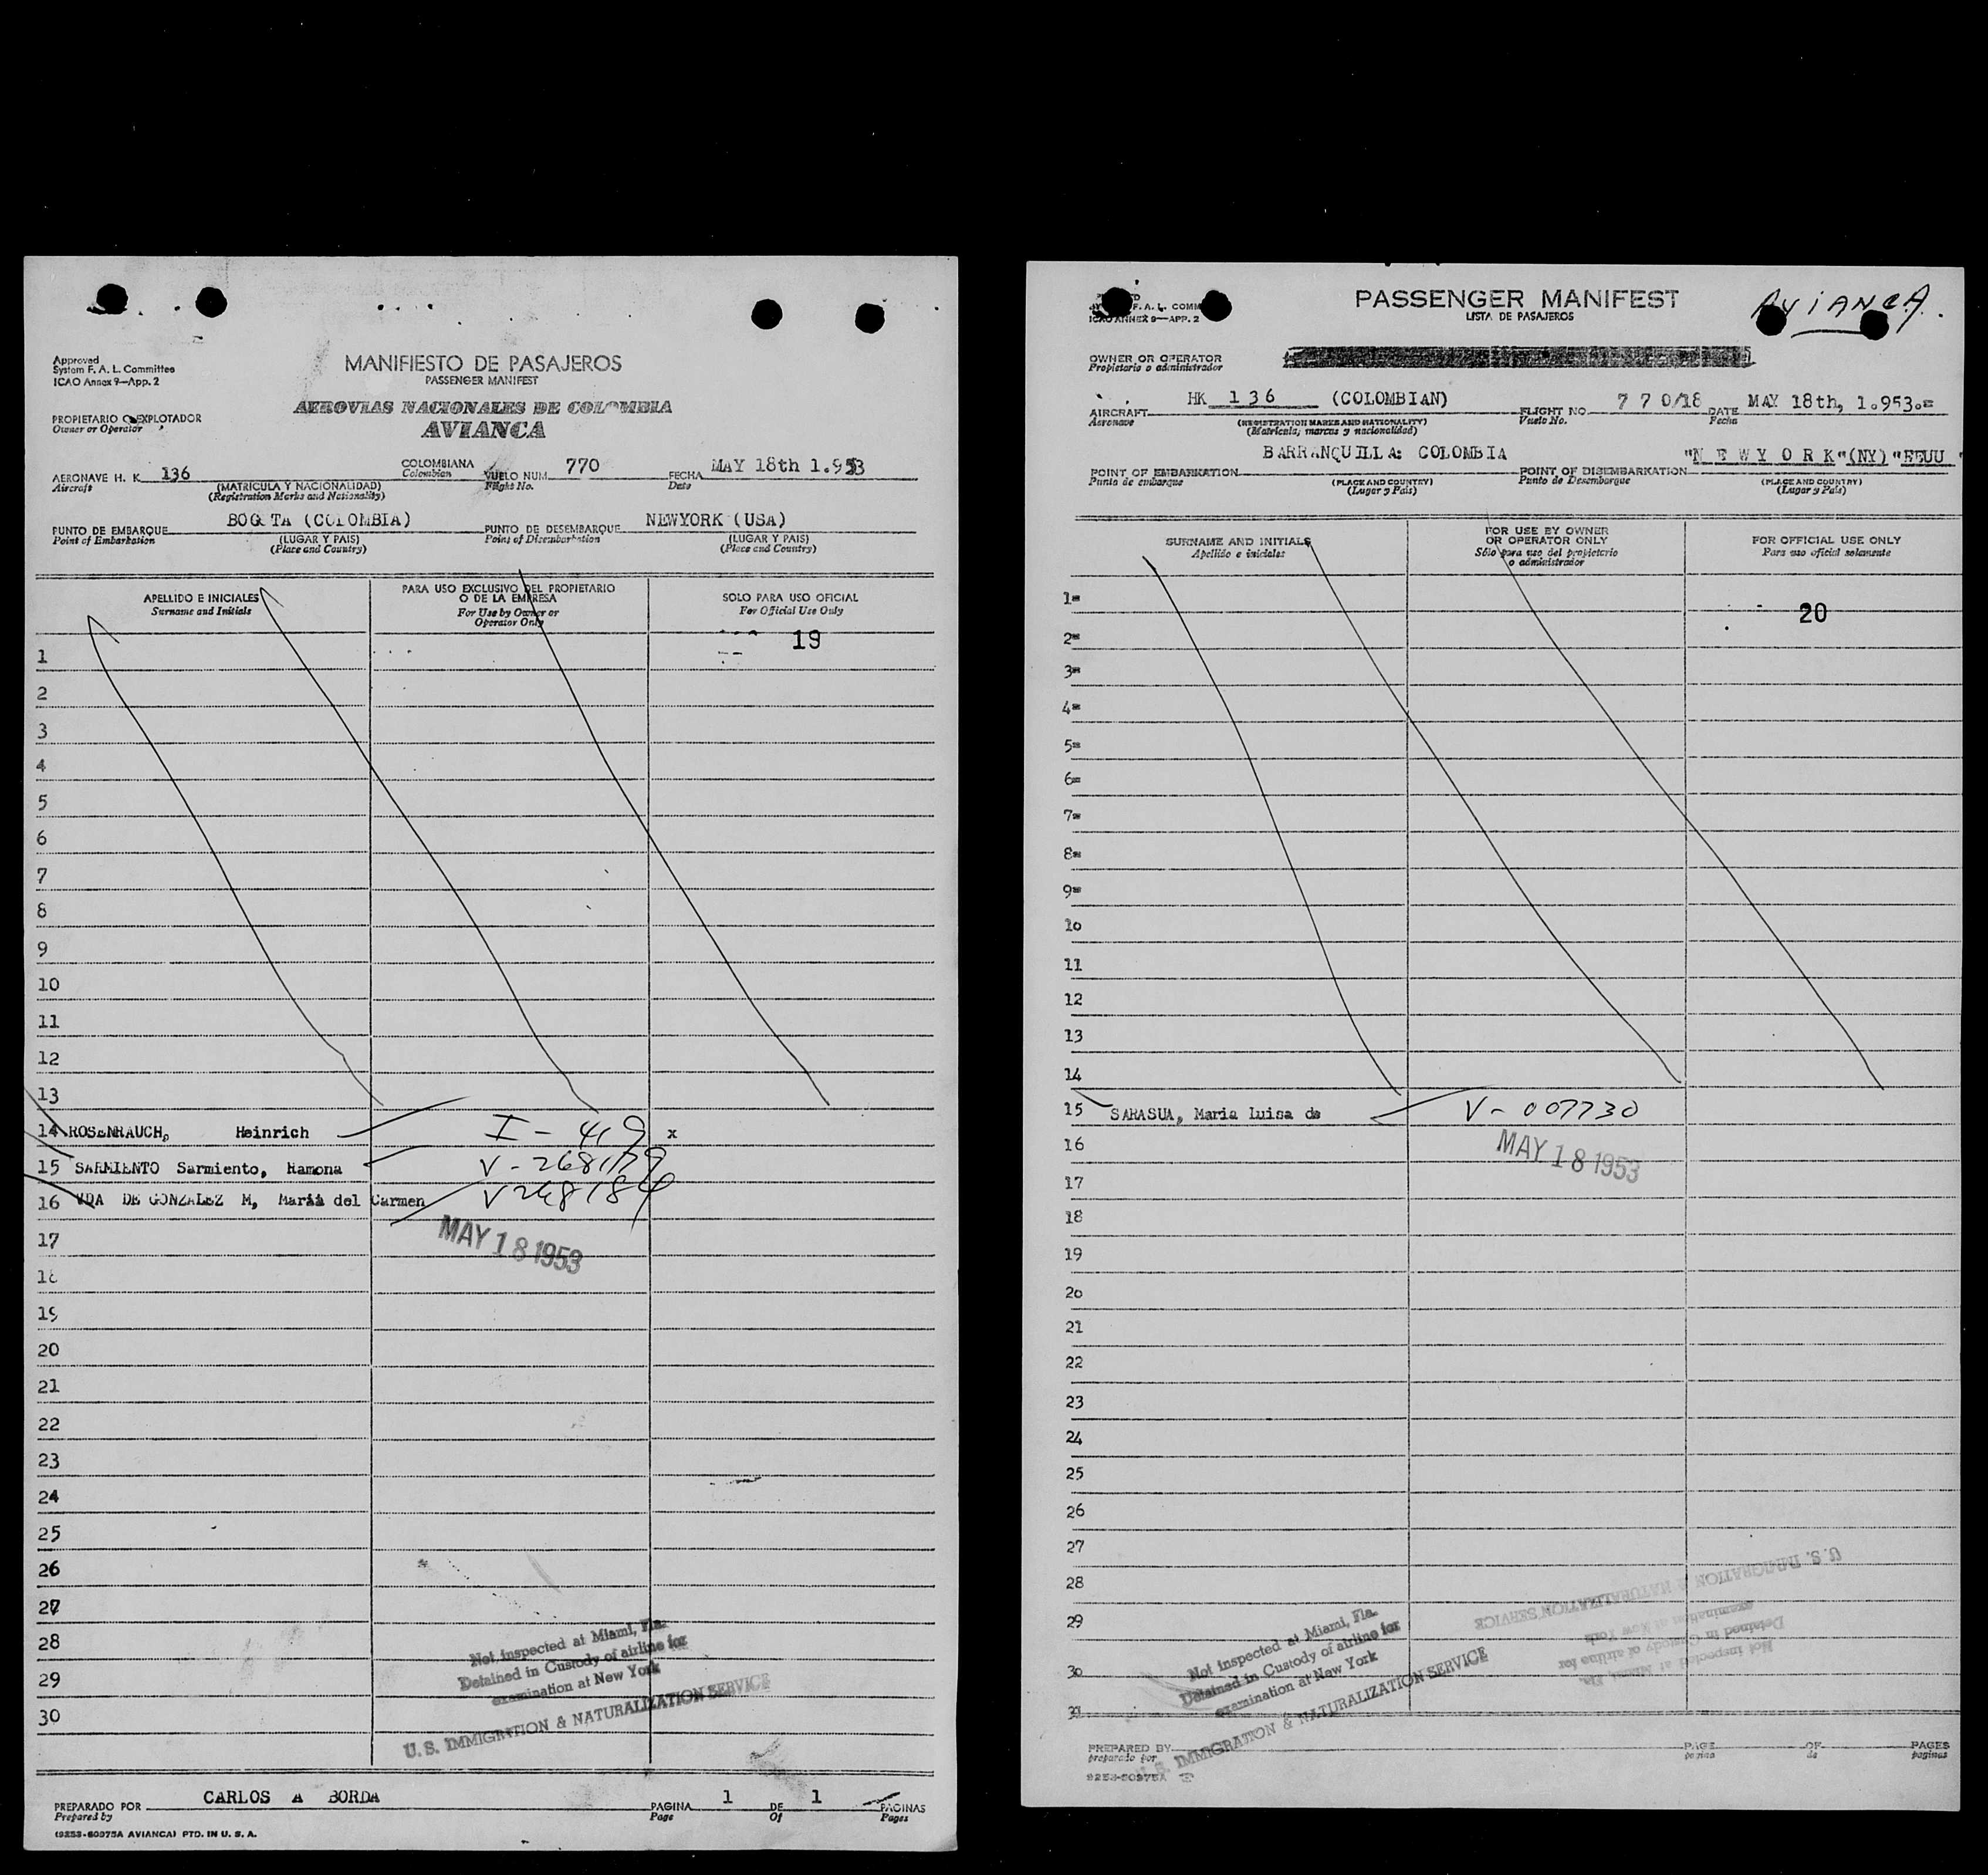 Approved
System F. A. L. Committee
ICAO Annex 9—App. 2
MANIFIESTO DE PASAJEROS
PASSENGER MANIFEST
PROPIETARIO O EXPLOTADOR
Owner or Operator
AEROVIAS NACIONALES DE COLOMBIA
AVIANCA
AERONAVE H. K. 136 COLOMBIANA VUELO NUM. 770 FECHA MAY 18th 1.953
Aircraft (MATRICULA Y NACIONALIDAD) Colombian Flight No. Date
(Registration Marks and Nationality)
PUNTO DE EMBARQUE BOGOTA (COLOMBIA) PUNTO DE DESEMBARQUE NEWYORK (USA)
Point of Embarkation (LUGAR Y PAIS) Point of Disembarkation (LUGAR Y PAIS)
(Place and Country) (Place and Country)
APELLIDO E INICIALES PARA USO EXCLUSIVO DEL PROPIETARIO SOLO PARA USO OFICIAL
Surname and Initials O DE LA EMPRESA For Official Use Only
For Use by Owner or
Operator Only
19
1
2
3
4
5
6
7
8
9
10
11
12
13
14 ROSENRAUCH, Heinrich I - 419 x
15 SARMIENTO Sarmiento, Ramona V - 268179
16 VDA DE GONZALEZ M, Maria del Carmen V268184
17 MAY 18 1953
18
19
20
21
22
23
24
25
26
27
28
29
30
Not inspected at Miami, Fla.
Detained in Custody of airline for
examination at New York
U. S. IMMIGRATION & NATURALIZATION SERVICE
PREPARADO POR CARLOS A BORDA PAGINA 1 DE 1 PAGINAS
Prepared by Page Of Pages
(9253-60975A AVIANCA) PTD. IN U. S. A.
F. A. L. COMM
ICAO ANNEX 9—APP. 2
PASSENGER MANIFEST
LISTA DE PASAJEROS
AVIANCA.
OWNER OR OPERATOR
Propietario o administrador
AIRCRAFT HK 136 (COLOMBIAN) FLIGHT NO. 770/18 DATE MAY 18th, 1.953.=
Aeronave (REGISTRATION MARKS AND NATIONALITY) Vuelo No. Fecha
(Matricula, marcas y nacionalidad)
POINT OF EMBARKATION BARRANQUILLA: COLOMBIA POINT OF DISEMBARKATION "N E W Y O R K"(NY)"EEUU"
Punto de embarque (PLACE AND COUNTRY) Punto de Desembarque (PLACE AND COUNTRY)
(Lugar y País) (Lugar y País)
SURNAME AND INITIALS FOR USE BY OWNER FOR OFFICIAL USE ONLY
Apellido e iniciales OR OPERATOR ONLY Para uso oficial solamente
Sólo para uso del propietario
o administrador
1=
20
2=
3=
4=
5=
6=
7=
8=
9=
10
11
12
13
14
15 SARASUA, Maria Luisa de V - 007730
16 MAY 18 1953
17
18
19
20
21
22
23
24
25
26
27
28
29
30
31
Not inspected at Miami, Fla.
Detained in Custody of airline for
examination at New York
U. S. IMMIGRATION & NATURALIZATION SERVICE
U. S. IMMIGRATION & NATURALIZATION SERVICE
examination at New York
Detained in Custody of airline for
Not inspected at Miami, Fla.
PREPARED BY PAGE OF PAGES
preparado por pagina de paginas
9253-60975A